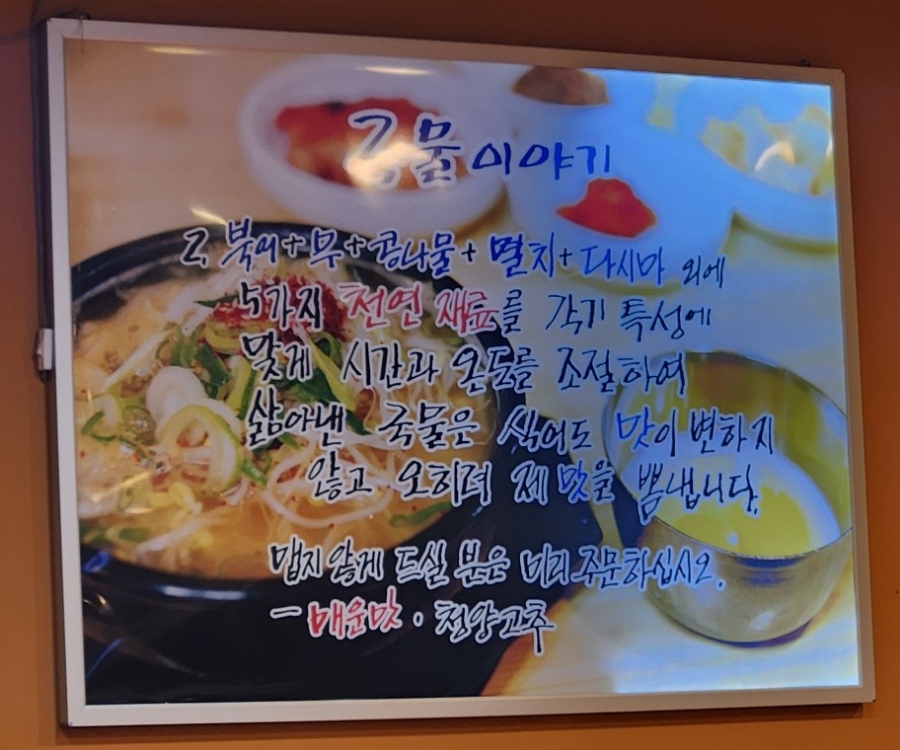 국물이야기
2. 북어+무+콩나물+멸치+다시마 외에
5가지 천연 재료를 각기 특성에
맞게 시간과 온도를 조절하여
삶아낸 국물은 식어도 맛이 변하지
않고 오히려 제 맛을 뽐냅니다.
맵지 않게 드실 분은 미리 주문하십시오.
- 매운맛 · 청양고추